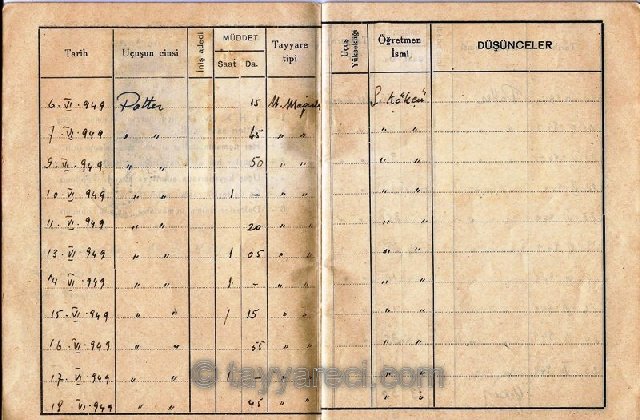 Tarih Uçuşun cinsi İniş adedi MÜDDET Saat Da. Tayyare tipi Uçuş Yüksekliği Öğretmen İsmi DÜŞÜNCELER
6.VI.949 15 M. S. Gökçen
7.VI.949 " " 45 " " " "
9.VI.949 " " 50 " " " "
10.VI.949 " " 1 - " " " "
11.VI.949 " " 20 " " " "
13.VI.949 " " 1 05 " " " "
14.VI.949 " " 1 - " " " "
15.VI.949 " " 1 15 " " " "
16.VI.949 " " 55 " " " "
17.VI.949 " " 1 - " " " "
18.VI.949 " " 45 " " " "
© tayyareci.com